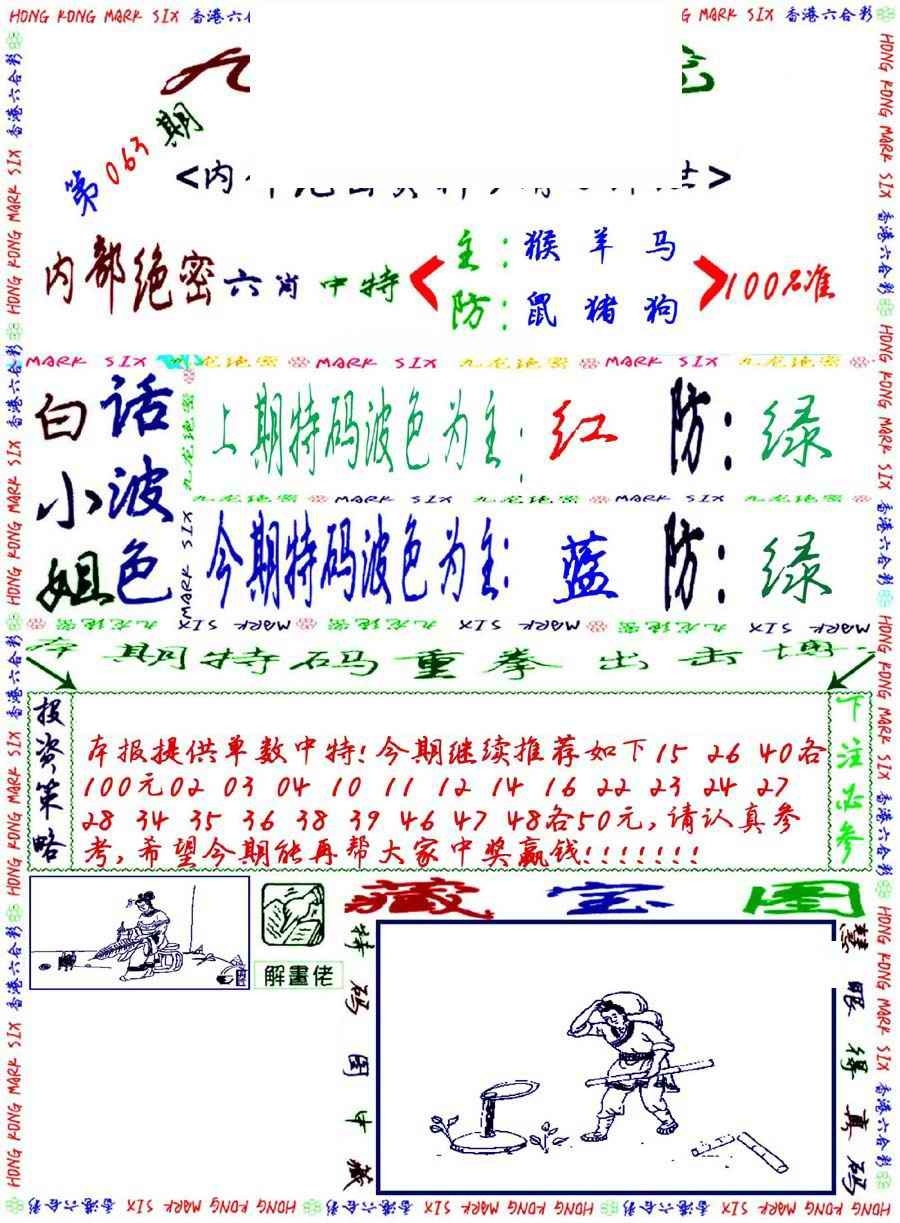 HONG KONG MARK SIX 香港六合彩
第063期
内部绝密六肖中特
主:猴羊马
防:鼠猪狗
100%准
MARK SIX 九龙绝密 MARK SIX 九龙绝密 MARK SIX 九龙绝密
白话
小波
姐色
上期特码波色为主:红 防:绿
九龙绝密 MARK SIX 九龙绝密 MARK SIX 九龙绝密
今期特码波色为主:蓝 防:绿
MARK SIX 九龙绝密 MARK SIX 九龙绝密 MARK SIX 九龙绝密
期特码重拳出击
投资策略
本报提供单数中特!今期继续推荐如下15 26 40各
100元02 03 04 10 11 12 14 16 22 23 24 27
28 34 35 36 38 39 46 47 48各50元,请认真参
考,希望今期能再帮大家中奖赢钱!!!!!!!
下注必参
藏宝图
解畫佬
特码图中藏
慧眼得真码
HONG KONG MARK SIX 香港六合彩